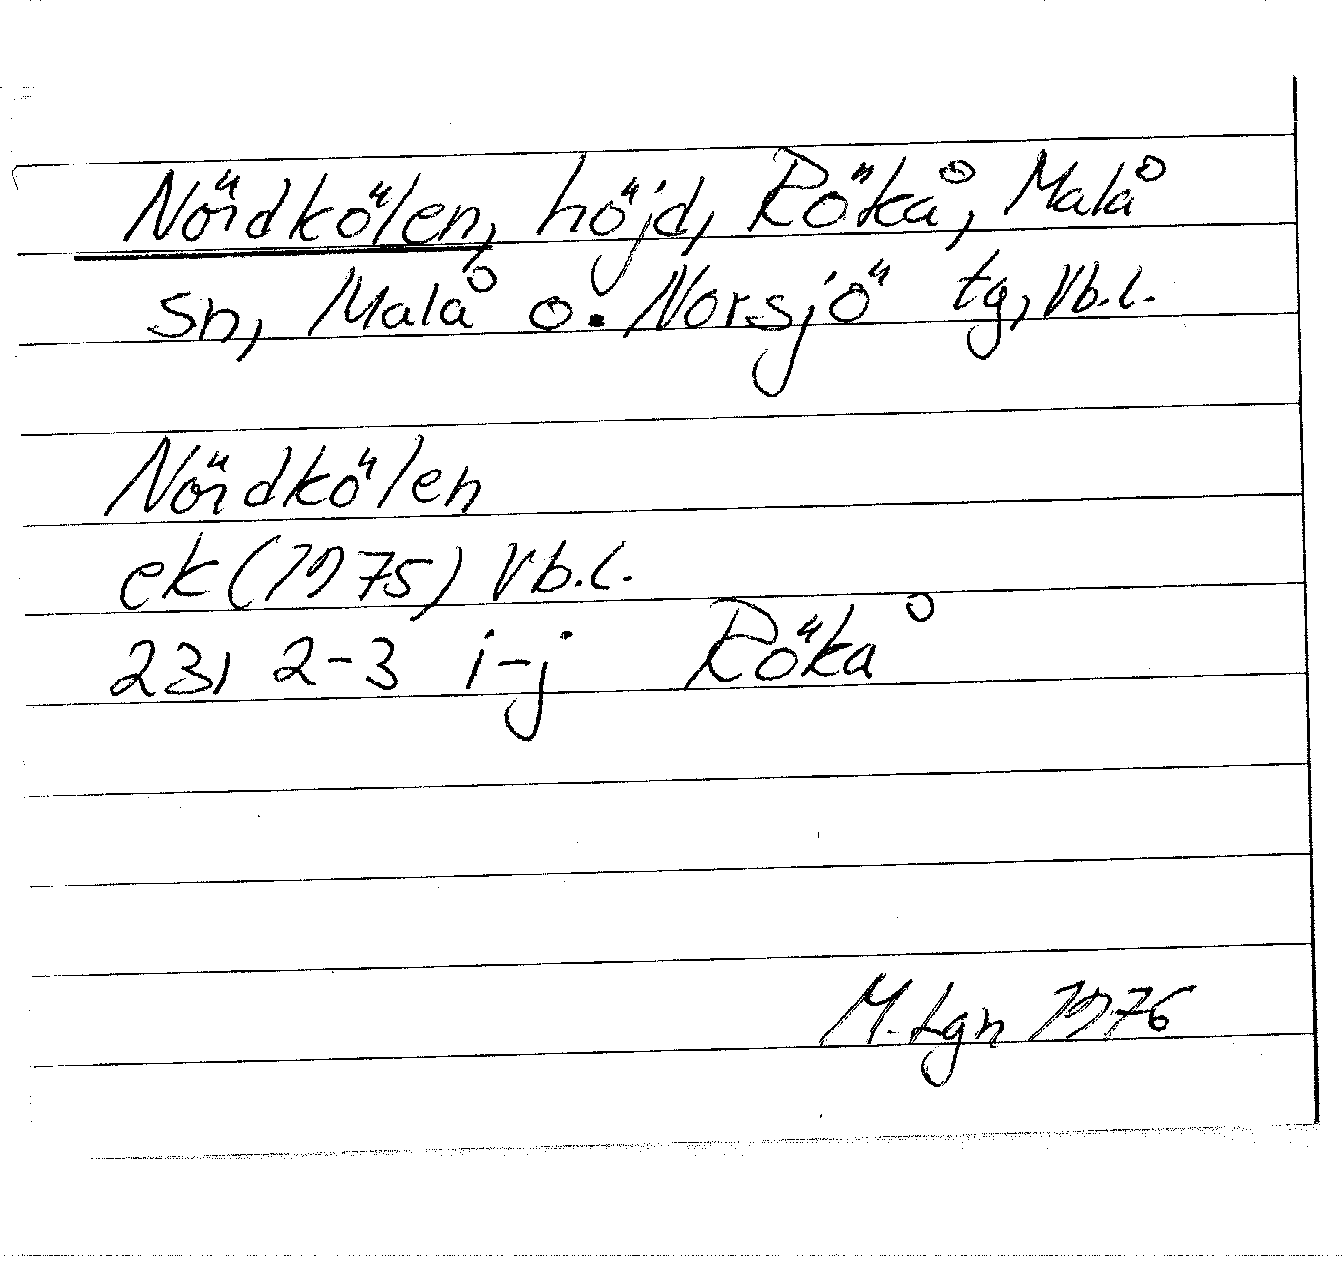 Nördkölen, höjd, Rökå, Malå
sn, Malå o. Norsjö tg, Vb.l.
Nördkölen
ek (1975) Vb.l.
23I 2-3 i-j Rökå
M. Lgn 1976